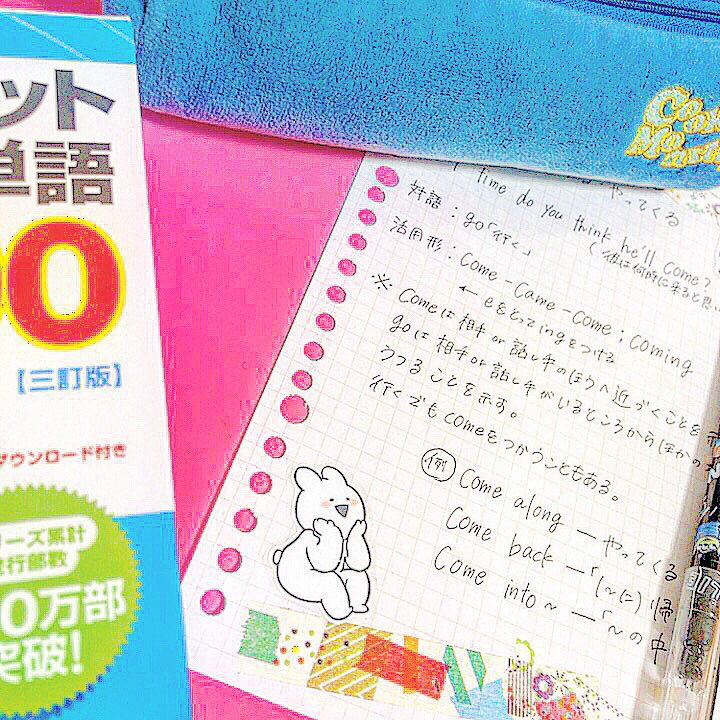 ット
単語
00
【三訂版】
ダウンロード付き
リーズ累計
発行部数
0万部
突破!
time do you think he'll come?
やってくる
(彼は何時に来ると思い
対語:go「行く」
活用形:come-came-come;coming
←eをとってingをつける
※ comeは相手or話し手のほうへ近づくことを
goは相手or話し手がいるところからほかの
うつることを示す。
行くでもcomeをつかうこともある。
例 Come along ―やってくる
Come back ―「(~に)帰
Come into ~ ―「~の中